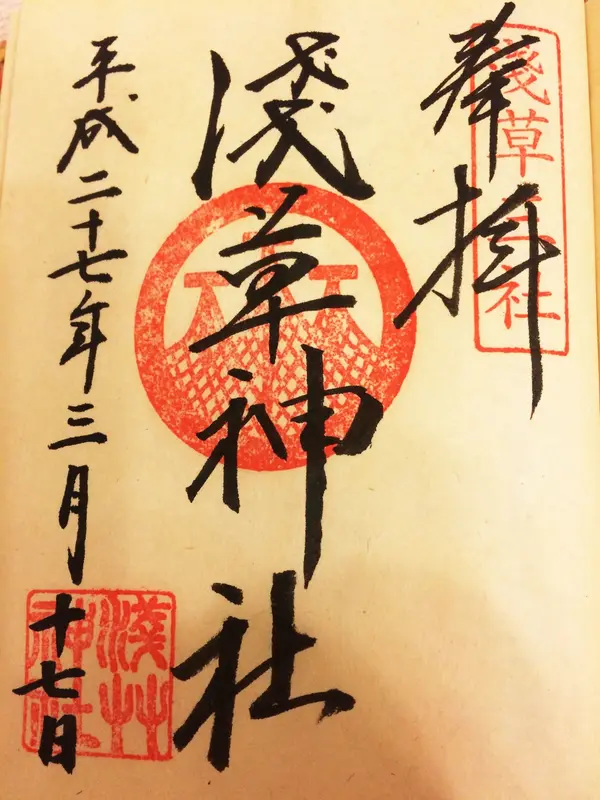 奉拝
淺草三社
淺草神社
平成二十七年三月十七日
淺艸神社